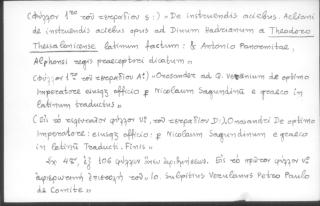 (φύλλον 1ον τοῦ τετραδίου Β:) «De instruendis aciebus. Aeliani
de instruendis aciebus opus ad Divum Hadrianum a Theodoro
Thessalonicense latinum factum: & Antonio Panormitae,
Alphonsi regis praeceptori dicatum»
(Φύλλον 1ον τοῦ τετραδίου A:) «Onosander ad Q. Veranium de optimo
Imperatore eiusq officio p Nicolaum Sagundinū e graeco in
latinum traductus»
(Εἰς τὸ τελευταῖον φύλλον VI, τοῦ τετραδίου D:) «Onosandri De optimo
Imperatore: eiusq officio: p Nicolaum Sagundinum e graeco
in latinū Traducti. Finis»
Σχ. 4ον, ἐξ 106 φύλλων ἄνευ ἀριθμήσεως. Εἰς τὸ πρῶτον φύλλον VI
ἀφιερωτικὴ ἐπιστολὴ τοῦ «Io. Sulpitius Verulanus Petro Paulo
de Comite»